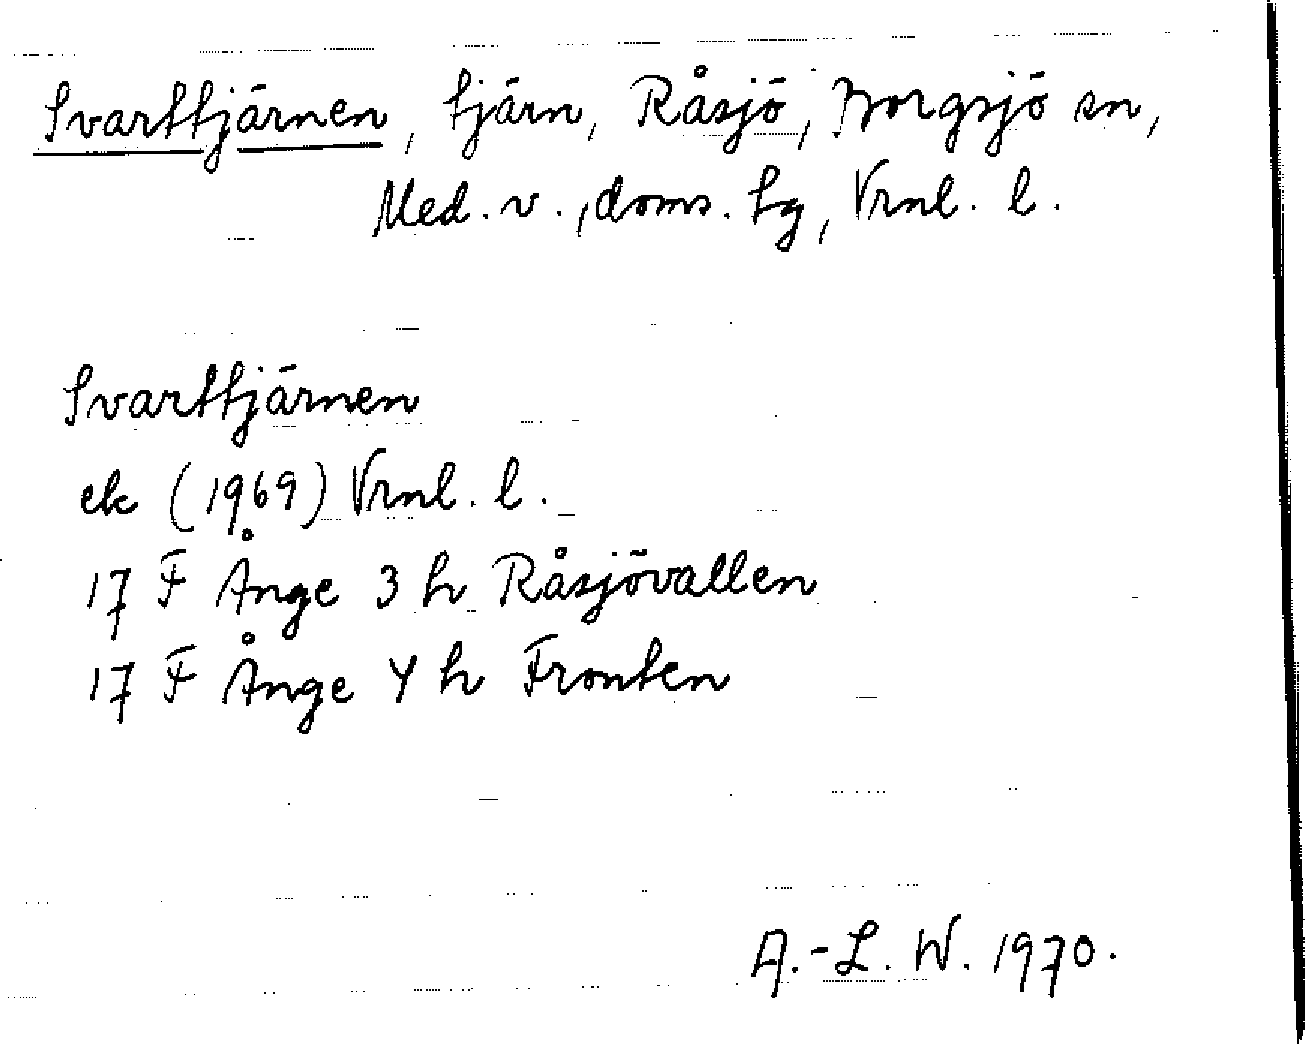 Svarttjärnen, tjärn, Råsjö, Borgsjö sn,
Med. v., doms. tg, Vrnl. l.
Svarttjärnen
ek (1969) Vrnl. l.
17 F Ånge 3 h Råsjövallen
17 F Ånge 4 h Fronten
A.-L. W. 1970.